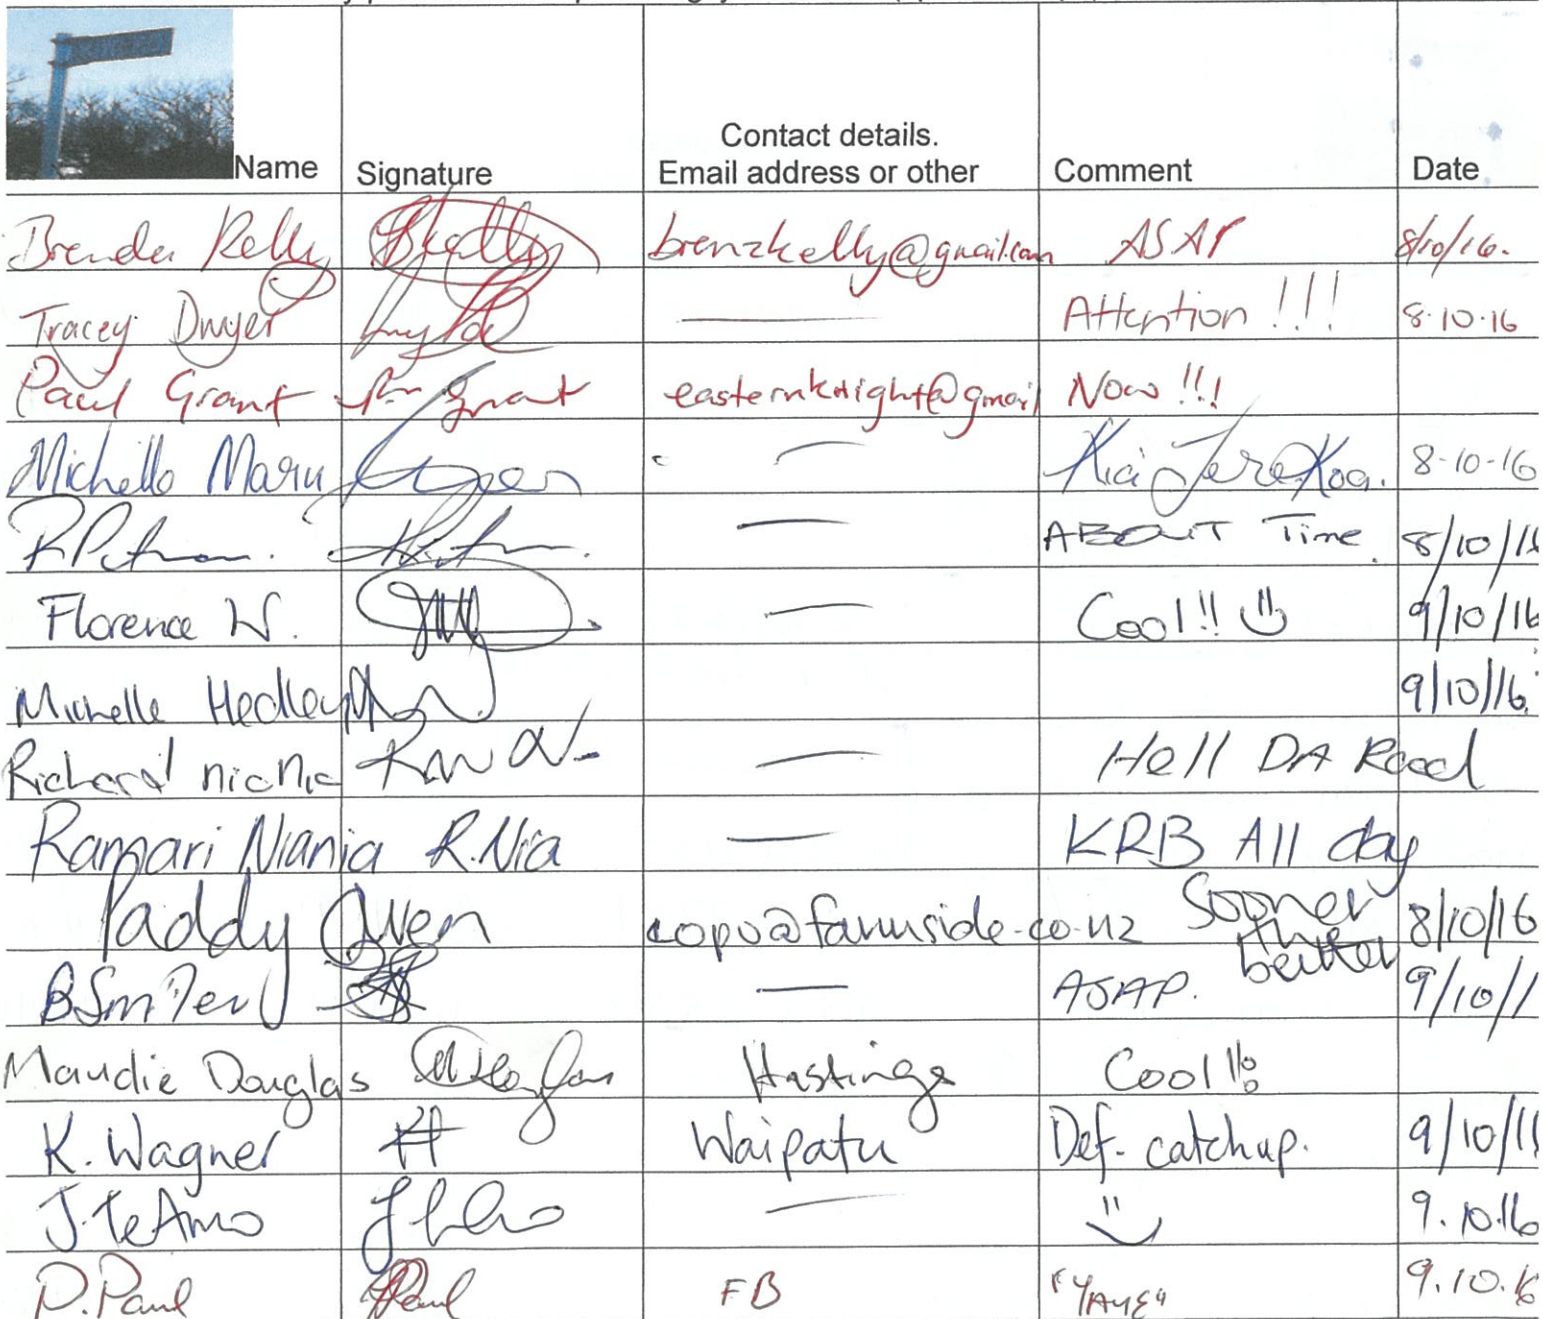 Name Signature Contact details. Email address or other Comment Date
Brenda Kelly BKelly brenzkelly@gmail.com ASAP 8/10/16.
Tracey Dwyer Attention !!! 8.10.16
Paul Grant Grant easternknight@gmail Now !!!
Michelle Maru Kia Tere Koa. 8-10-16
ABOUT Time. 8/10/16
Florence W. Cool!! 9/10/16
Michelle Hedley 9/10/16.
Richard Hell DA Road
Ramari Niania R.Nia KRB All day
Paddy Owen copu@farmside.co.nz Sooner the better 8/10/16
ASAP. 9/10/1
Maudie Douglas Hastings Cool!!
K. Wagner Waipatu Def. catchup. 9/10/1
J. Te Amo 9.10.16
P. Paul Paul FB "YAYE" 9.10.16